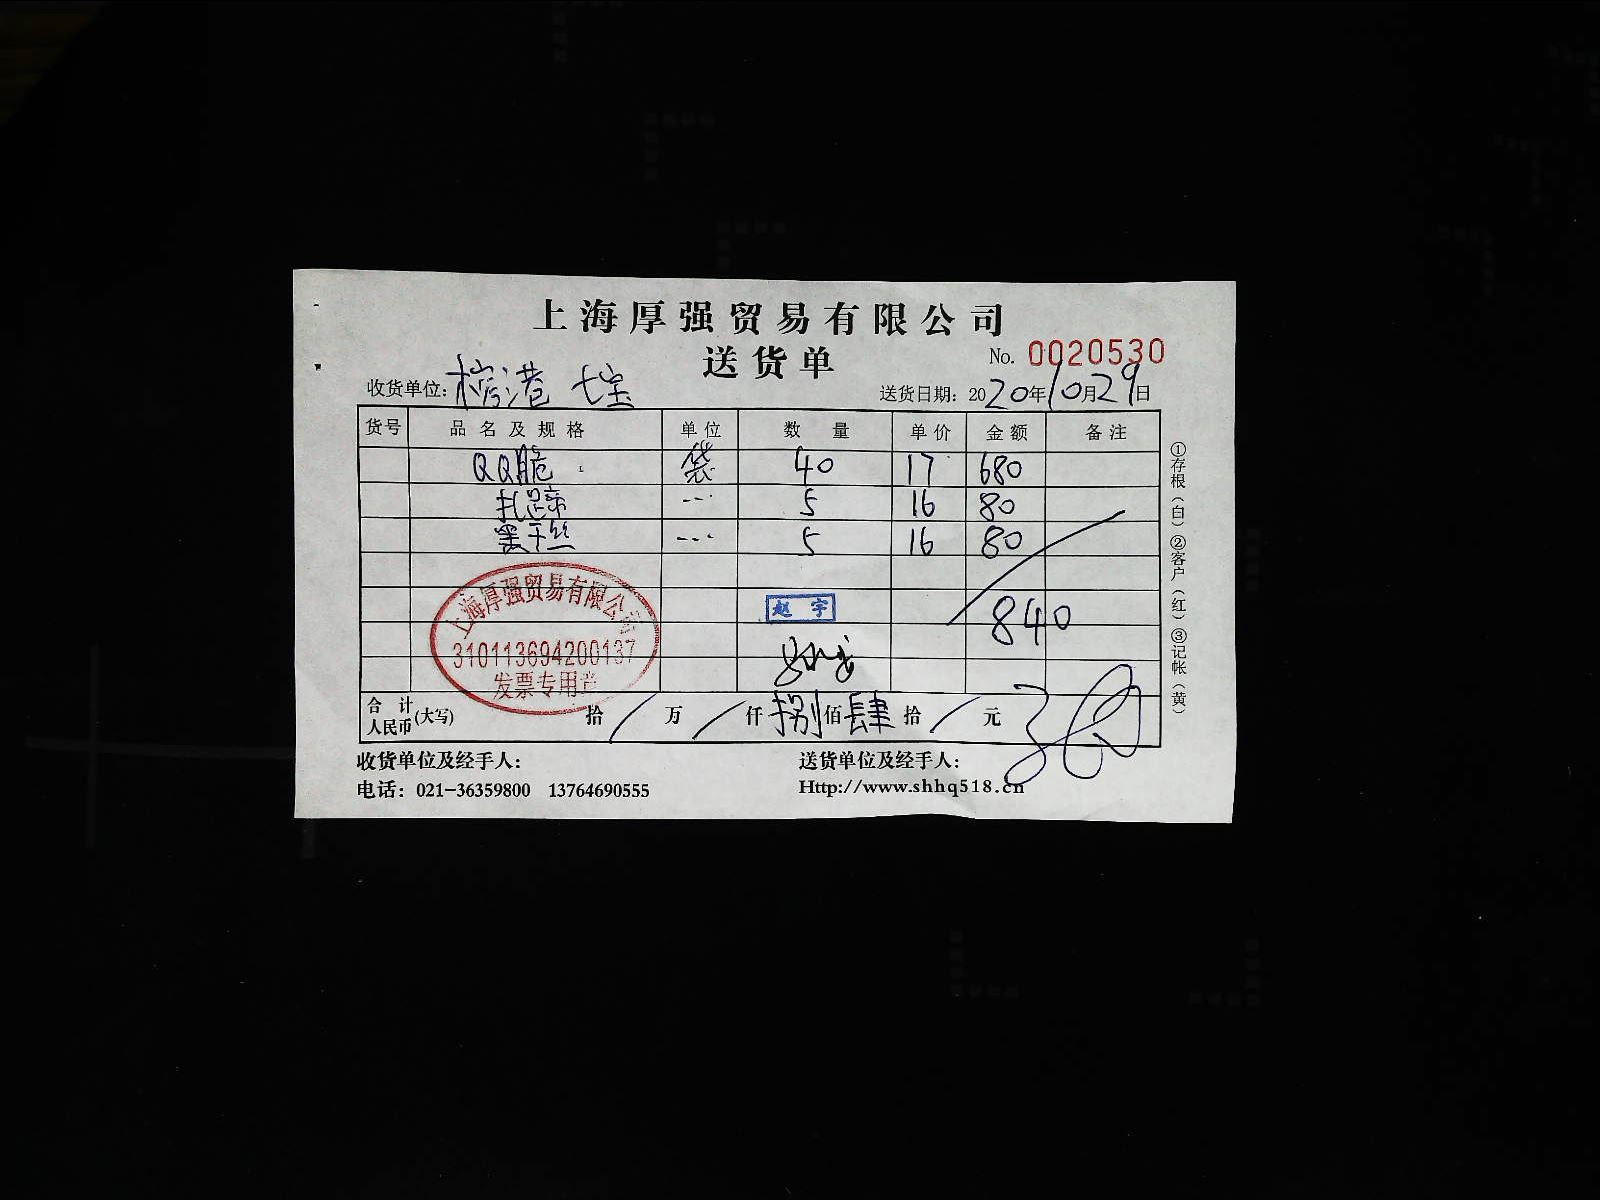 上海厚强贸易有限公司
送货单
No. 0020530
收货单位: 榜港 七宝
送货日期: 2020年10月29日
货号 品名及规格 单位 数量 单价 金额 备注
QQ脆 袋 40 17 680
扎蹄 --- 5 16 80
黑干丝 --- 5 16 80
赵宇
840
上海厚强贸易有限公司
310113694200137
发票专用章
合计人民币(大写) 拾/万/仟捌佰肆拾/元
收货单位及经手人:
送货单位及经手人:
电话: 021-36359800 13764690555
Http://www.shhq518.cn
①存根(白)②客户(红)③记帐(黄)